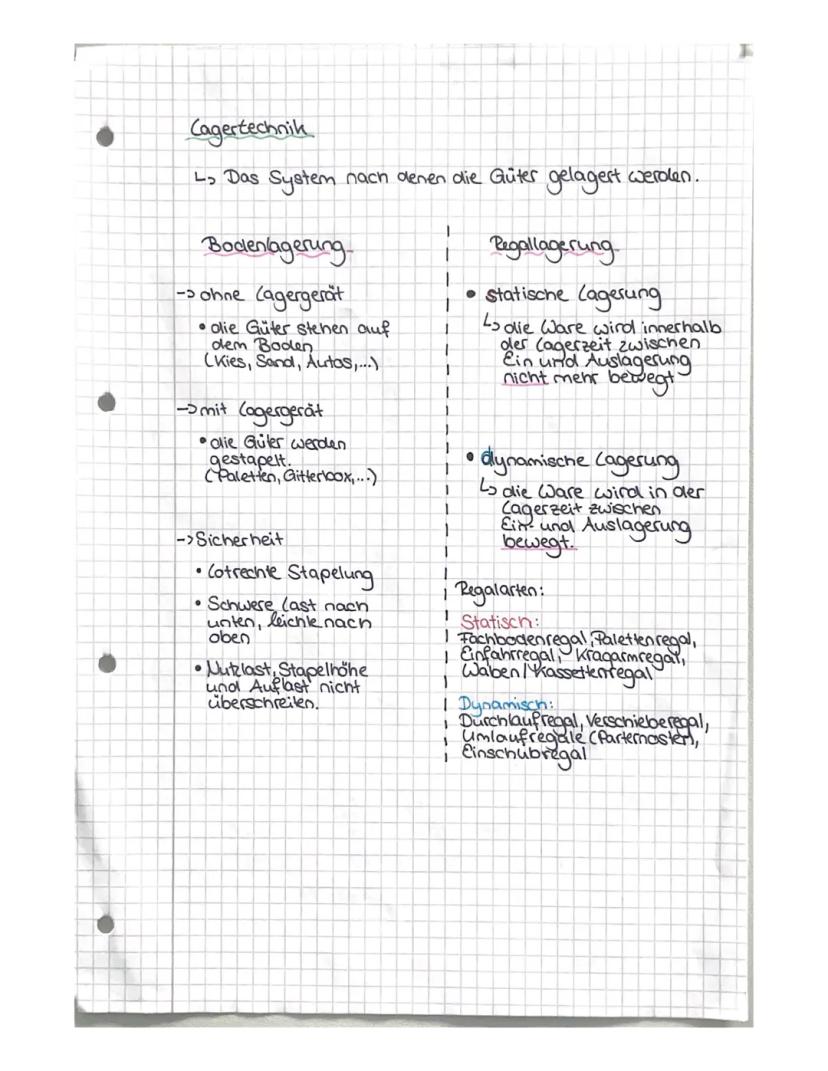 Lagertechnik
↳ Das System nach denen die Güter gelagert werden.
Bodenlagerung
-> ohne Lagergerät
• die Güter stehen auf
dem Boden
(Kies, Sand, Autos,...)
-> mit Lagergerät
• die Güter werden
gestapelt.
(Paletten, Gitterbox,...)
-> Sicherheit
• Lotrechte Stapelung
• Schwere Last nach
unten, leichte nach
oben
• Nutzlast, Stapelhöhe
und Auflast nicht
überschreiten.
Regallagerung
• statische Lagerung
↳ die Ware wird innerhalb
der Lagerzeit zwischen
Ein und Auslagerung
nicht mehr bewegt
• dynamische Lagerung
↳ die Ware wird in der
Lagerzeit zwischen
Ein- und Auslagerung
bewegt.
Regalarten:
Statisch:
Fachbodenregal, Palettenregal,
Einfahrregal, Kragarmregal,
Waben/Kassettenregal
Dynamisch:
Durchlaufregal, Verschieberegal,
Umlaufregale (Parternoster),
Einschubregal